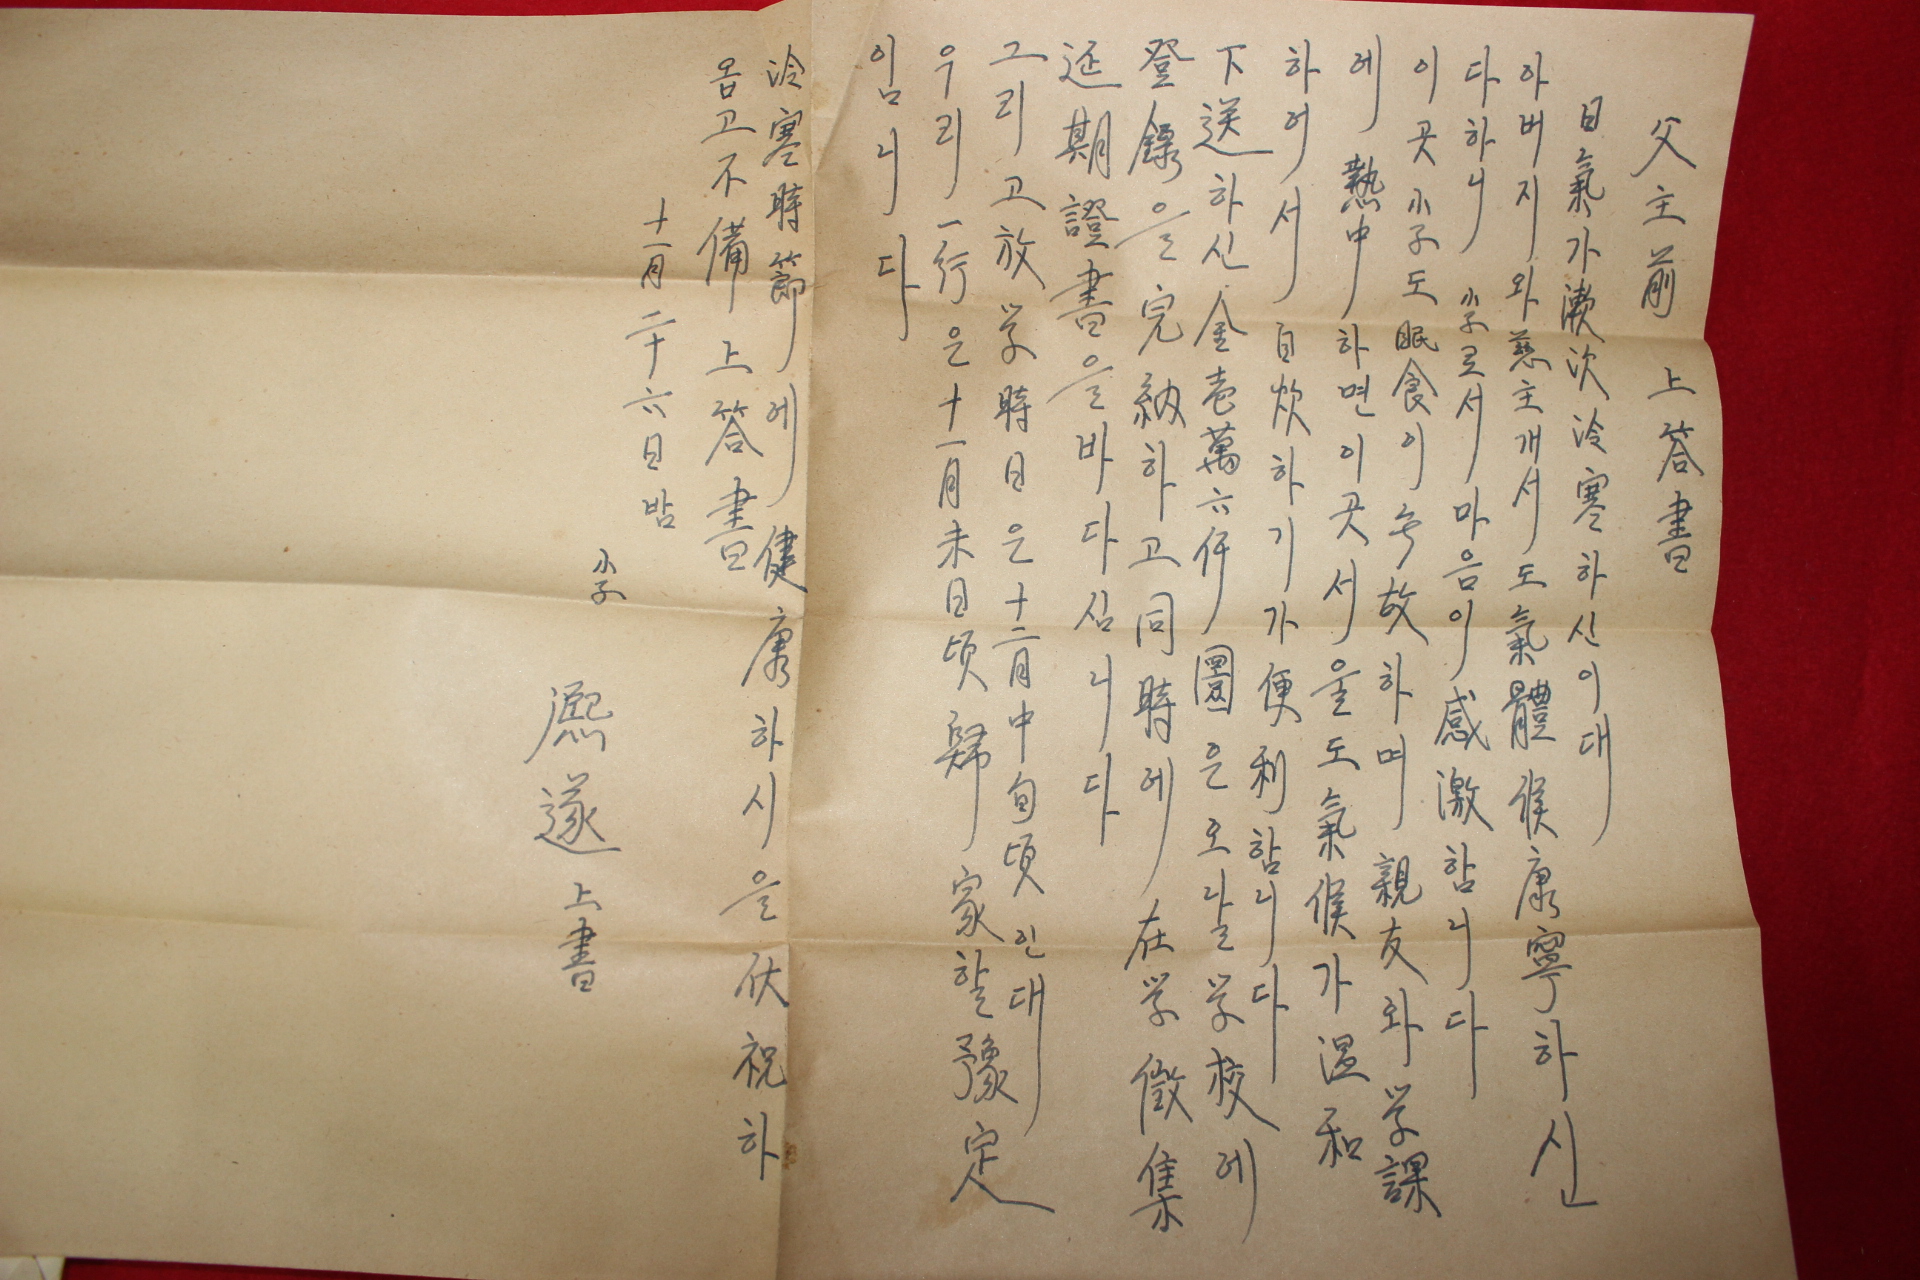 父主前 上答書
日氣가 漱次 冷寒하신이대
아버지와 慈主개서도 氣體候康寧하신
다하니 小子로서 마음이 感激함니다
이곳 小子도 眠食이 무故하며 親友와 学課
에 熱中하면 이곳 서울도 氣候가 溫和
하여서 自炊하기가 便利함니다
下送하신 金壱萬六仟圜은 오날 学校에
登錄을 完納하고 同時에 在学徵集
延期證書을 바다심니다
그리고 放学時日은 十二月中旬頃인대
우리 一行은 十一月末日頃 歸家할 豫定
임니다
冷寒時節에 健康하시을 伏祝하
옴고 不備上答書
十一月 二十六日 밤
小子
熙遂 上書